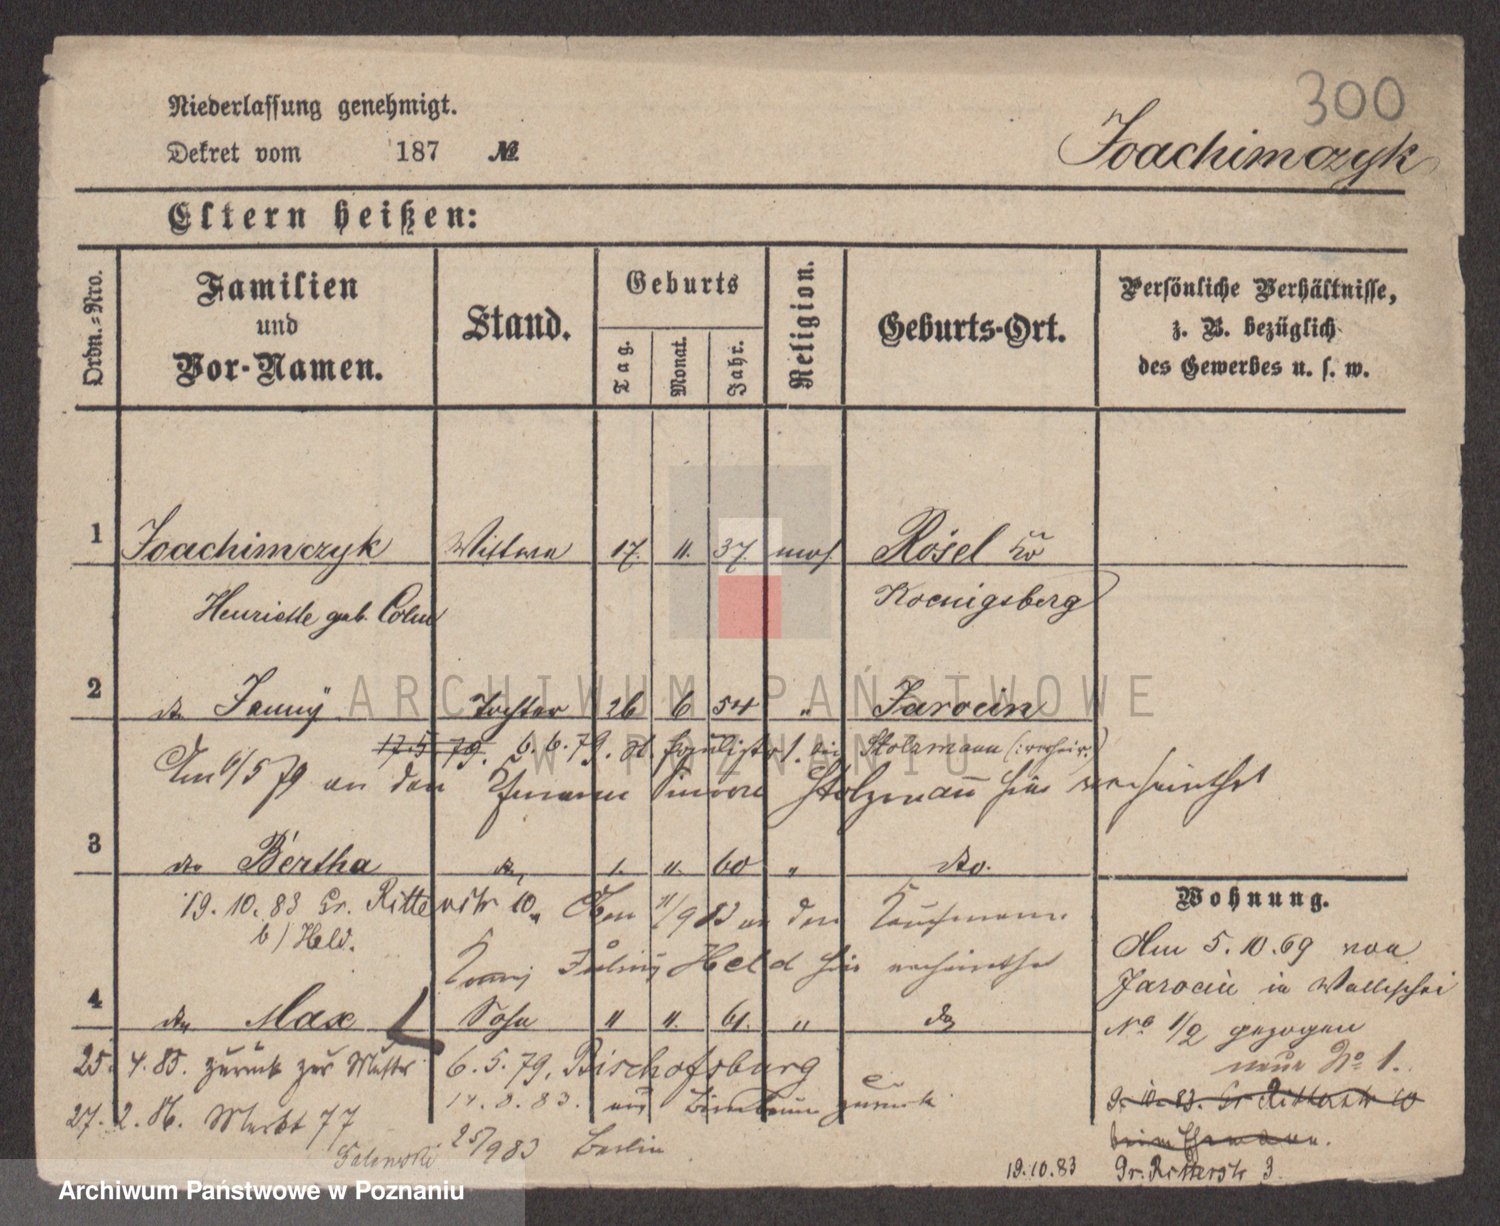 300
Niederlassung genehmigt.
Joachimczyk
Dekret vom 187 №
Eltern heißen:
Ordn.-Nro.
Familien
und
Vor-Namen.
Stand.
Geburts
Tag.
Monat.
Jahr.
Religion.
Geburts-Ort.
Persönliche Verhältnisse,
z. B. bezüglich
des Gewerbes u. s. w.
1 Joachimczyk Wittwe 17. 11. 37. mos. Rösel
Henriette geb. Koenigsberg
2 Fanny Tochter 26 6 54 " Jarocin
17.5.79. 6.6.79. bei Stolzmann
Am 6/5 79 an den Kfmann Stolzmann hier verheirathet
3 Bertha 1. 11. 60 " do.
19.10.83 Gr. Ritterstr 10. 11/9 83 an den Kaufmann
b/ Held. Julius Held hier verheirathet
4 Max Sohn " 11. 61. " do
25.4.85. zurück zur Mutter 6.5.79. Bischofsburg
27.2.86. Markt 77 zurück
25/9 83 Berlin
Wohnung.
Am 5.10.69 von
Jarocin in Wallischei
No 1/2 gezogen
neue No 1.
9.10.83. Gr Ritterstr 10
beim Ehemann.
19.10.83 Gr. Ritterstr 3.
ARCHIWUM PAŃSTWOWE
W POZNANIU
Archiwum Państwowe w Poznaniu